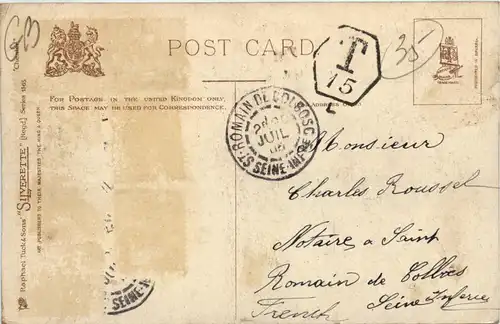 GB
POST CARD
T
15
L
35
FOR POSTAGE IN THE UNITED KINGDOM ONLY,
THIS SPACE MAY BE USED FOR CORRESPONDENCE.
Raphael Tuck & Sons' "SILVERETTE"
ST ROMAIN DE COLBOSC
JUIL
SEINE-INFRE
Monsieur
Charles Roussel
Notaire a Saint
Romain de Colbosc
Seine Inferie
French
SEINE-IN